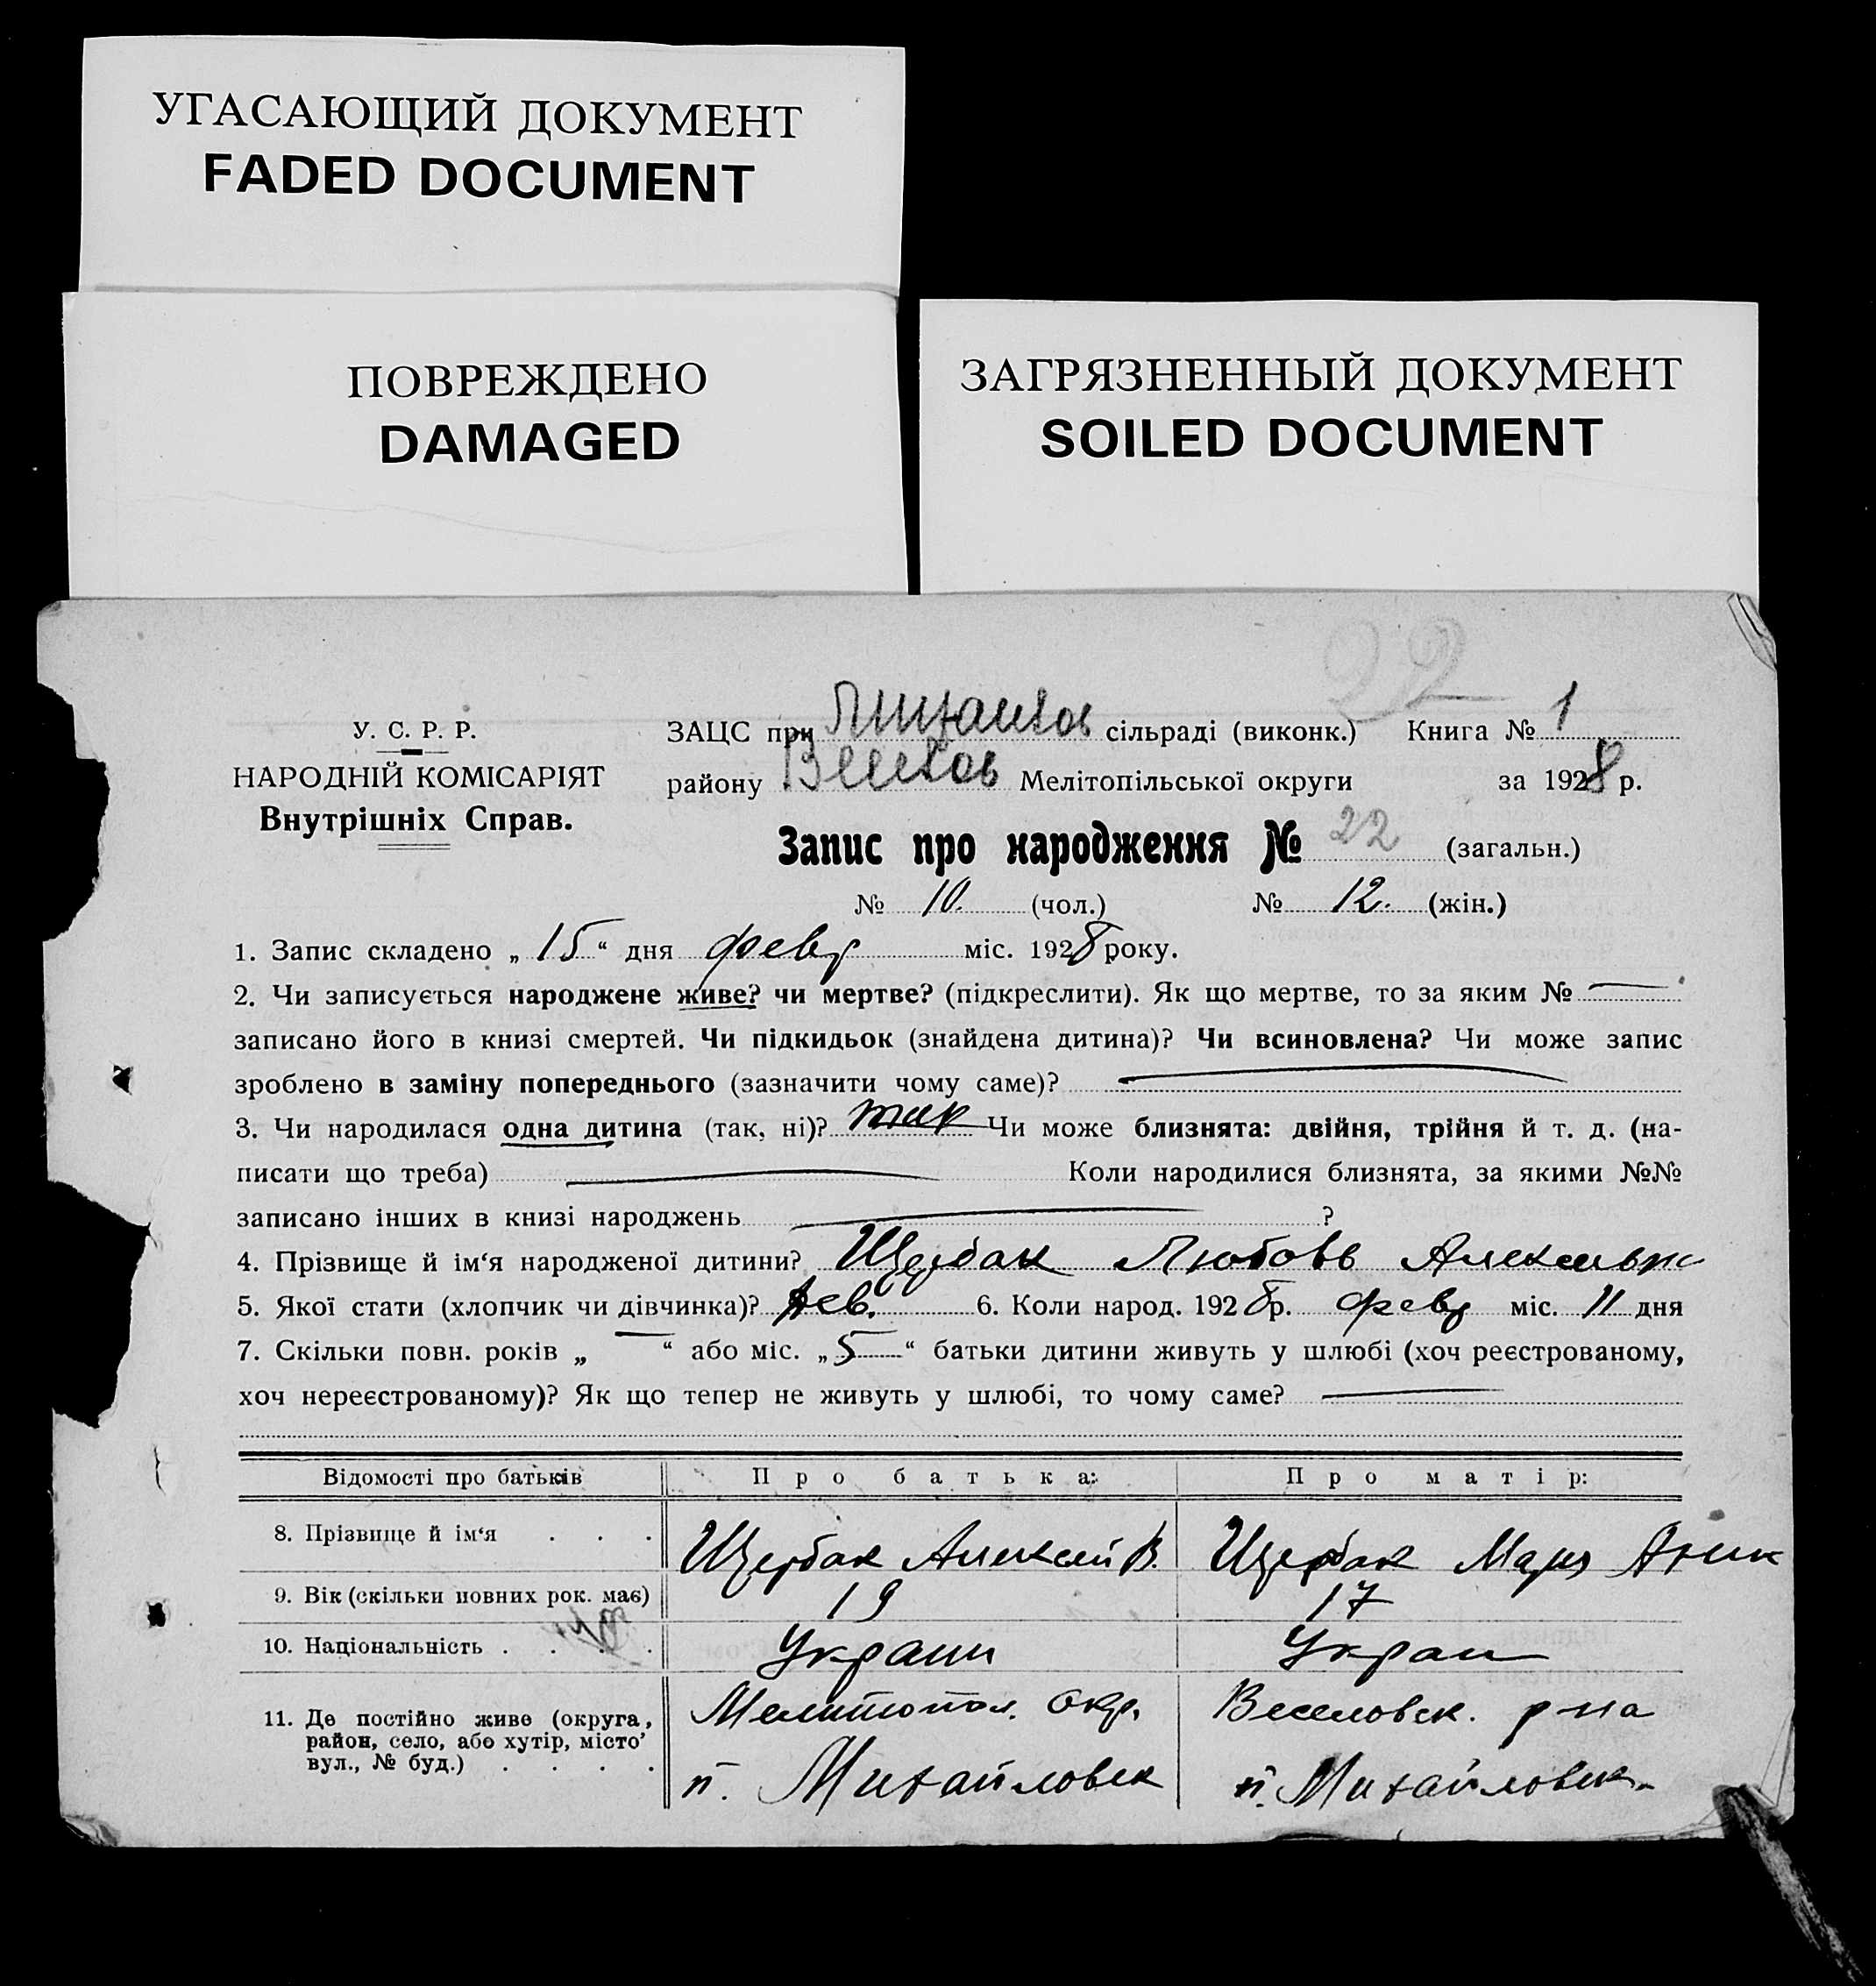 УГАСАЮЩИЙ ДОКУМЕНТ
FADED DOCUMENT
ПОВРЕЖДЕНО
DAMAGED
ЗАГРЯЗНЕННЫЙ ДОКУМЕНТ
SOILED DOCUMENT
22
У. С. Р. Р.
НАРОДНІЙ КОМІСАРІЯТ
Внутрішніх Справ.
ЗАЦС при сільраді (виконк.) Книга № 1
району Мелітопільської округи за 1928 р.
Запис про народження № 22 (загальн.)
№ 10. (чол.) № 12. (жін.)
1. Запис складено „ 15 “ дня февр міс. 1928 року.
2. Чи записується народжене живе? чи мертве? (підкреслити). Як що мертве, то за яким № —
записано його в книзі смертей. Чи підкидьок (знайдена дитина)? Чи всиновлена? Чи може запис
зроблено в заміну попереднього (зазначити чому саме)? —
3. Чи народилася одна дитина (так, ні)? так Чи може близнята: двійня, трійня й т. д. (на-
писати що треба) — Коли народилися близнята, за якими №№
записано інших в книзі народжень — ?
4. Прізвище й ім‘я народженої дитини? Щербак Любовь
5. Якої стати (хлопчик чи дівчинка)? дев. 6. Коли народ. 1928 р. февр міс. 11 дня
7. Скільки повн. років „ — “ або міс. „ 5 “ батьки дитини живуть у шлюбі (хоч реєстрованому,
хоч нереєстрованому)? Як що тепер не живуть у шлюбі, то чому саме? —
Відомості про батьків Про батька: Про матір:
8. Прізвище й ім‘я . . . Щербак Алексей В. Щербак Мария
9. Вік (скільки повних рок. має) 19 17
10. Національність . . . . Украин Украи
11. Де постійно живе (округа, район, село, або хутір, місто’ вул., № буд.) . . . .
Мелитопол. окр. Веселовск. р-на
п. Михайловск п. Михайловск.